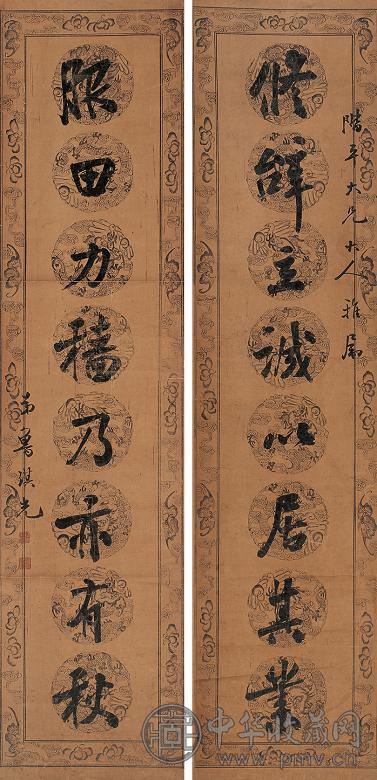 階平大兄大人雅屬
修辭立誠以居其業
服田力穡乃亦有秋
弟魯琪光
中华收藏网
www.pmv.cn